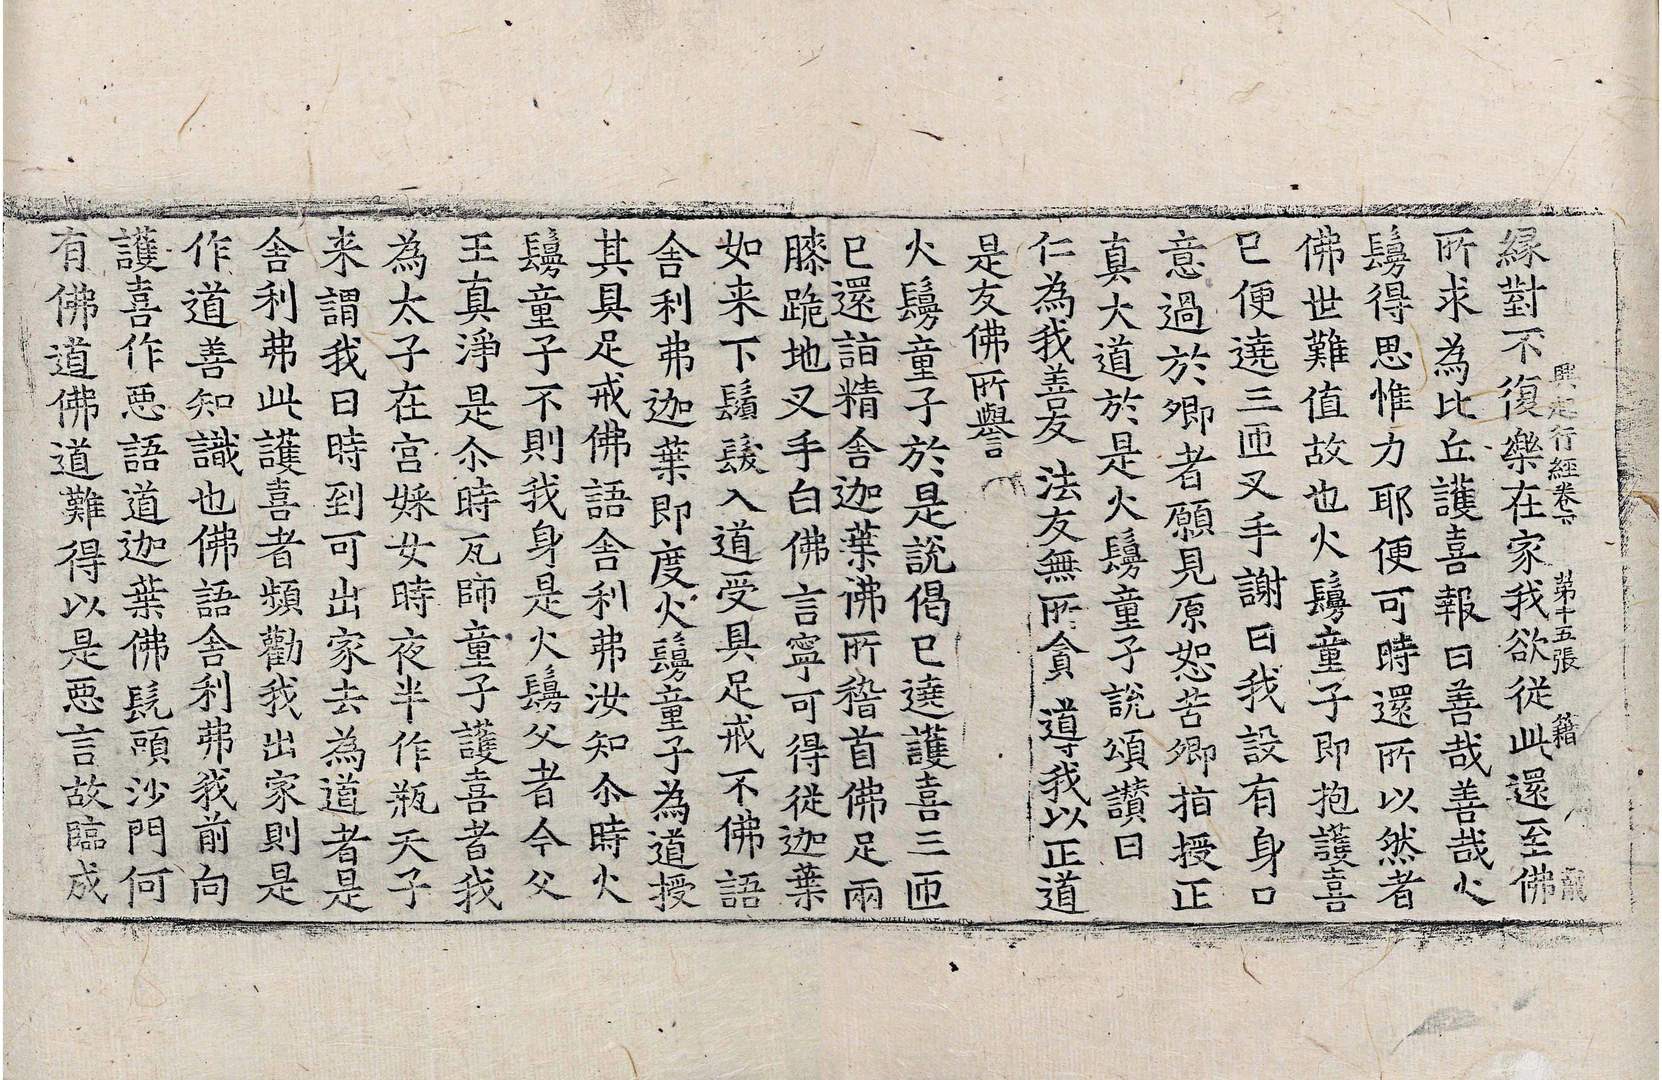 興起行經卷下 第十五張 籍
縁對不復樂在家我欲從此還至佛
所求為比丘護喜報曰善哉善哉火
鬘得思惟力耶便可時還所以然者
佛世難值故也火鬘童子即抱護喜
已便遶三匝叉手謝曰我設有身口
意過於卿者願見原恕苦卿指授正
真大道於是火鬘童子說頌讃曰
仁為我善友 法友無所貪 導我以正道
是友佛所譽
火鬘童子於是說偈已遶護喜三匝
已還詣精舍迦葉佛所稽首佛足兩
膝跪地叉手白佛言寧可得從迦葉
如来下鬚髮入道受具足戒不佛語
舍利弗迦葉即度火鬘童子為道授
其具足戒佛語舍利弗汝知尒時火
鬘童子不則我身是火鬘父者今父
王真淨是尒時瓦師童子護喜者我
為太子在宮婇女時夜半作瓶天子
来謂我曰時到可出家去為道者是
舍利弗此護喜者頻勸我出家則是
作道善知識也佛語舍利弗我前向
護喜作惡語道迦葉佛髡頭沙門何
有佛道佛道難得以是惡言故臨成